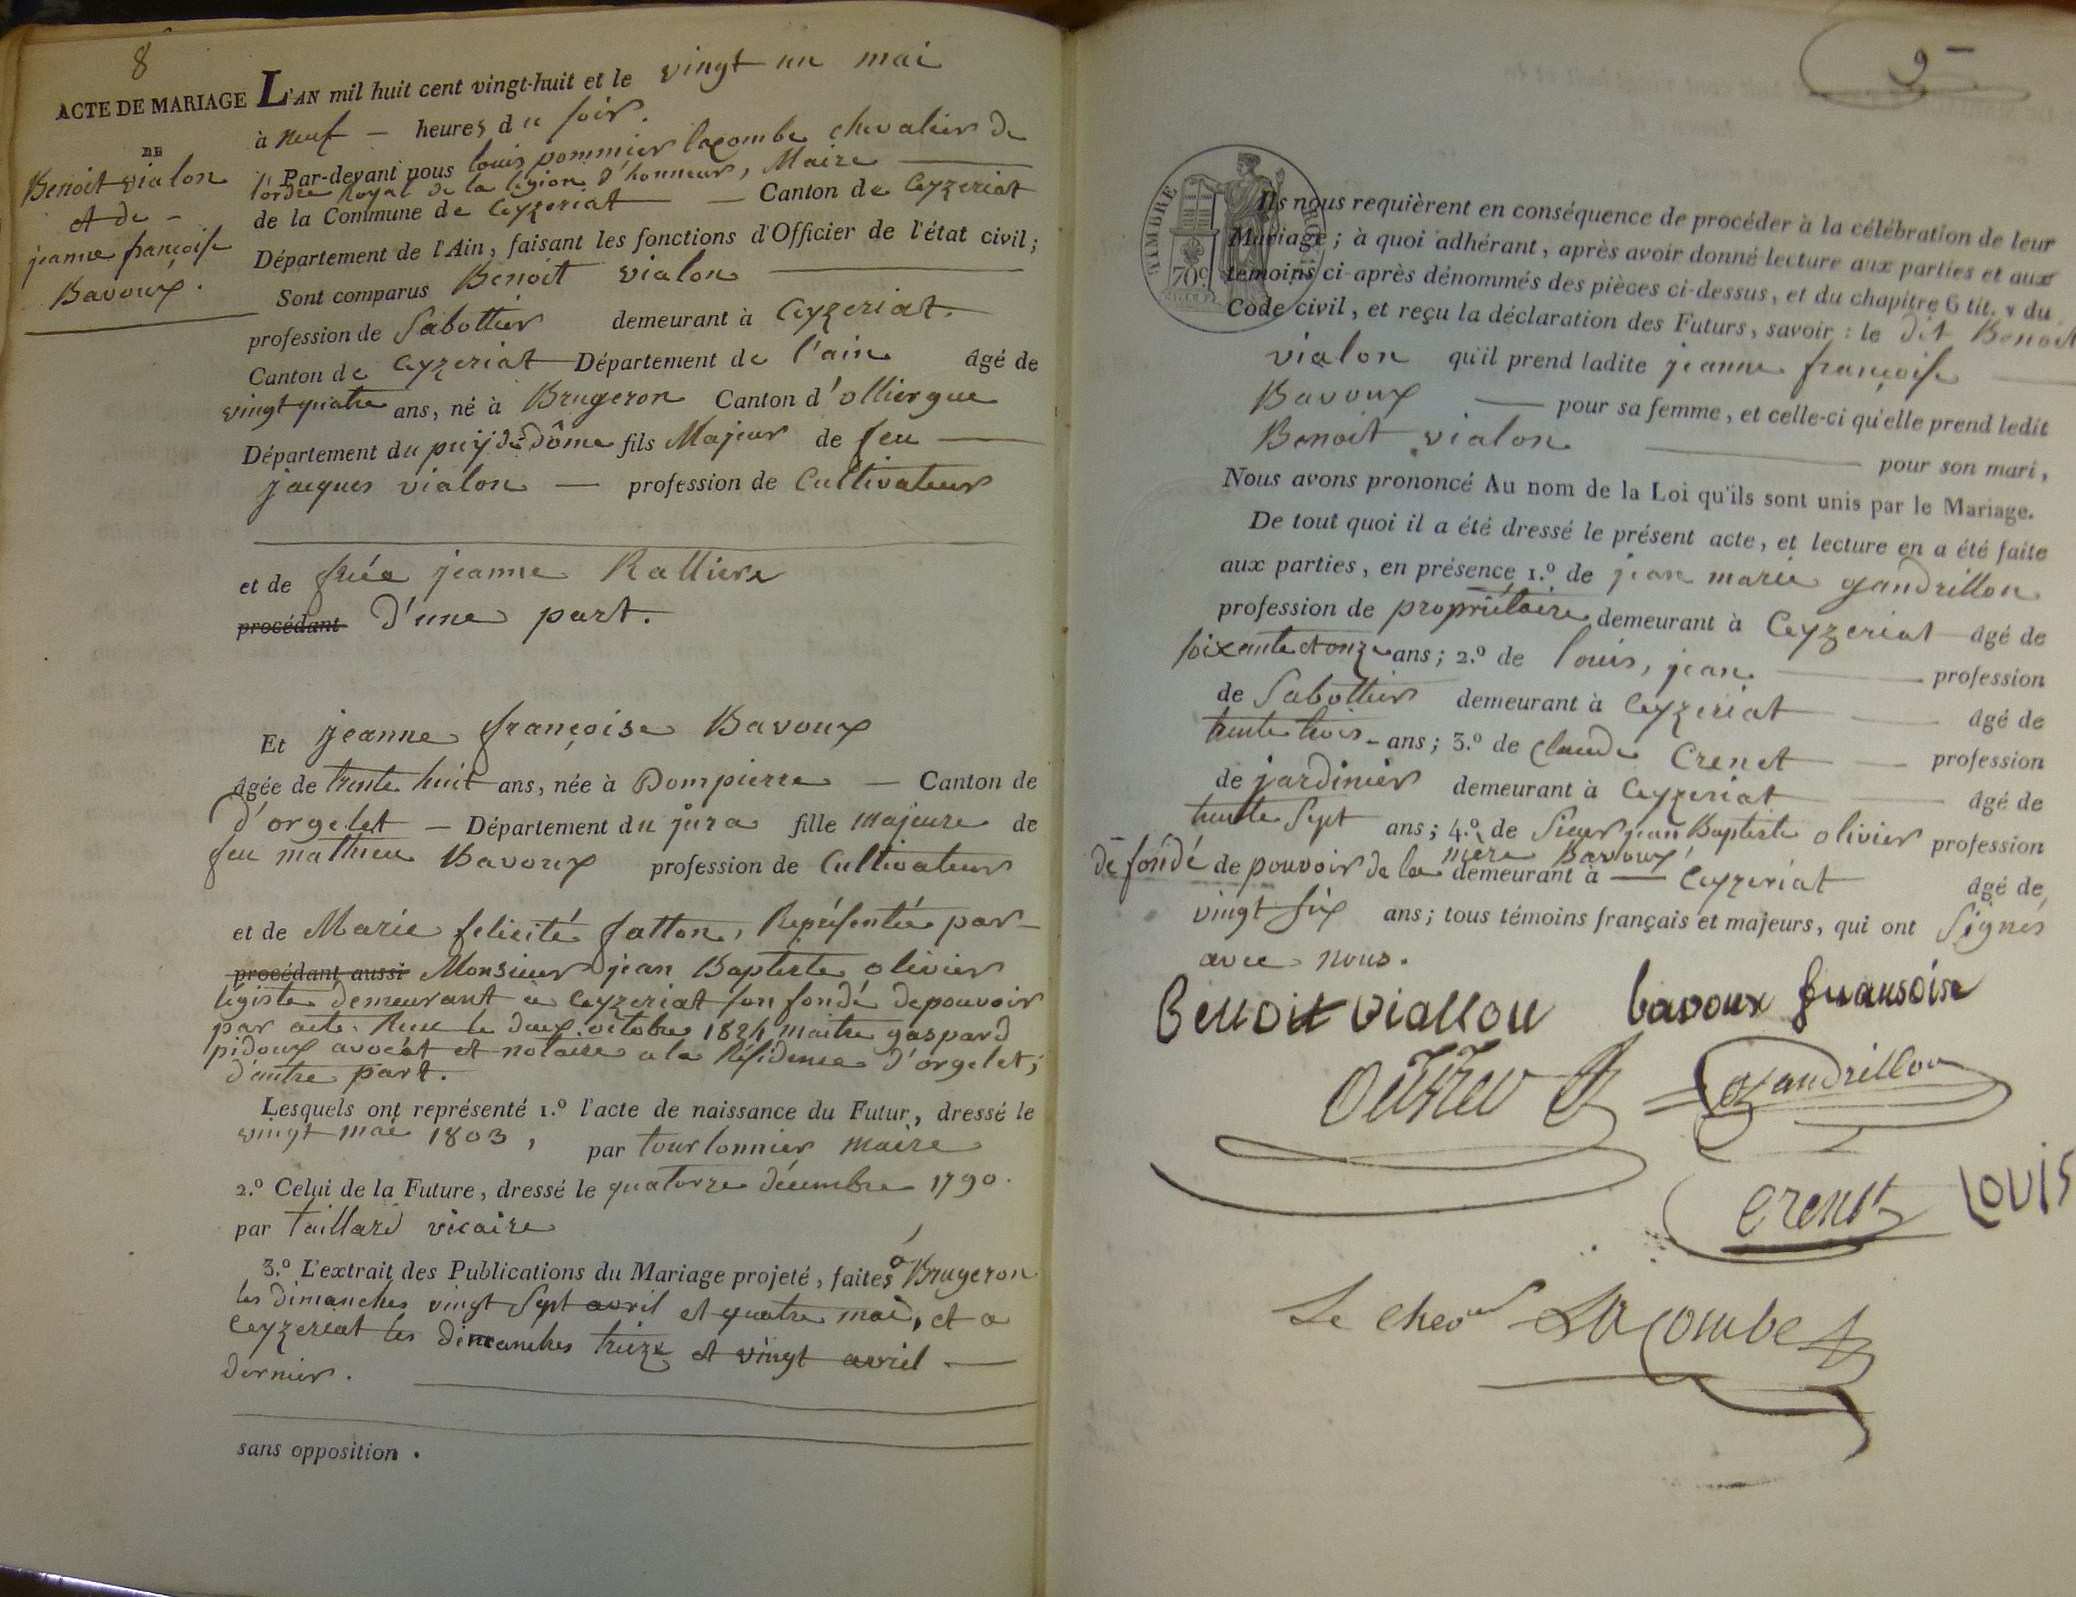 8
ACTE DE MARIAGE
DE
Benoit vialon
et de -
jeanne françoise
Bavoux.
L'AN mil huit cent vingt-huit et le vingt un mai
à neuf - heures du soir.
Par-devant nous louis pommier lacombe chevalier de
l'ordre Royal de la légion d'honneur, Maire
de la Commune de Ceyzeriat - Canton de Ceyzeriat
Département de l'Ain, faisant les fonctions d'Officier de l'état civil;
Sont comparus Benoit vialon
profession de Sabottier demeurant à Ceyzeriat.
Canton de Ceyzeriat Département de l'ain âgé de
vingt quatre ans, né à Brugeron Canton d'olliergue
Département du puy de dôme fils Majeur de feu
jacques vialon - profession de Cultivateur
et de jeanne Ralliere
procédant d'une part.
Et jeanne françoise Bavoux
âgée de trente huit ans, née à Dompierre - Canton de
d'orgelet - Département du jura fille majeure de
feu mathieu Bavoux profession de Cultivateur
et de Marie felicité fatton, Représentée par
procédant aussi Monsieur jean Baptiste olivier
légiste demeurant à Ceyzeriat son fondé de pouvoir
par acte Reçu le deux octobre 1824 maitre gaspard
pidoux avocat et notaire a la Résidence d'orgelet;
d'autre part.
Lesquels ont représenté 1.º l'acte de naissance du Futur, dressé le
vingt mai 1803, par tourlonnier maire
2.º Celui de la Future, dressé le quatorze décembre 1790.
par taillard vicaire
3.º L'extrait des Publications du Mariage projeté, faites à Brugeron
les dimanches vingt sept avril et quatre mai, et a
Ceyzeriat les dimanches treize et vingt avril
dernier.
sans opposition.
9
TIMBRE ROYAL
70c
Ils nous requièrent en conséquence de procéder à la célébration de leur
Mariage; à quoi adhérant, après avoir donné lecture aux parties et aux
témoins ci-après dénommés des pièces ci-dessus, et du chapitre 6 tit. v du
Code civil, et reçu la déclaration des Futurs, savoir: le dit Benoit
vialon qu'il prend ladite jeanne françoise
Bavoux pour sa femme, et celle-ci qu'elle prend ledit
Benoit vialon pour son mari,
Nous avons prononcé Au nom de la Loi qu'ils sont unis par le Mariage.
De tout quoi il a été dressé le présent acte, et lecture en a été faite
aux parties, en présence 1.º de jean marie gandrillon
profession de propriétaire demeurant à Ceyzeriat âgé de
soixante et onze ans; 2.º de louis, jean profession
de Sabottier demeurant à Ceyzeriat âgé de
trente trois - ans; 3.º de claude Crenet profession
de jardinier demeurant à Ceyzeriat âgé de
trente sept ans; 4.º de Sieur jean Baptiste olivier profession
de fondé de pouvoir de la mère Bavoux demeurant à Ceyzeriat âgé de
vingt six ans; tous témoins français et majeurs, qui ont signés
avec nous.
Benoit viallon bavoux fransoise
Gandrillon
Crenet LOUIS
Le chever Lacombe